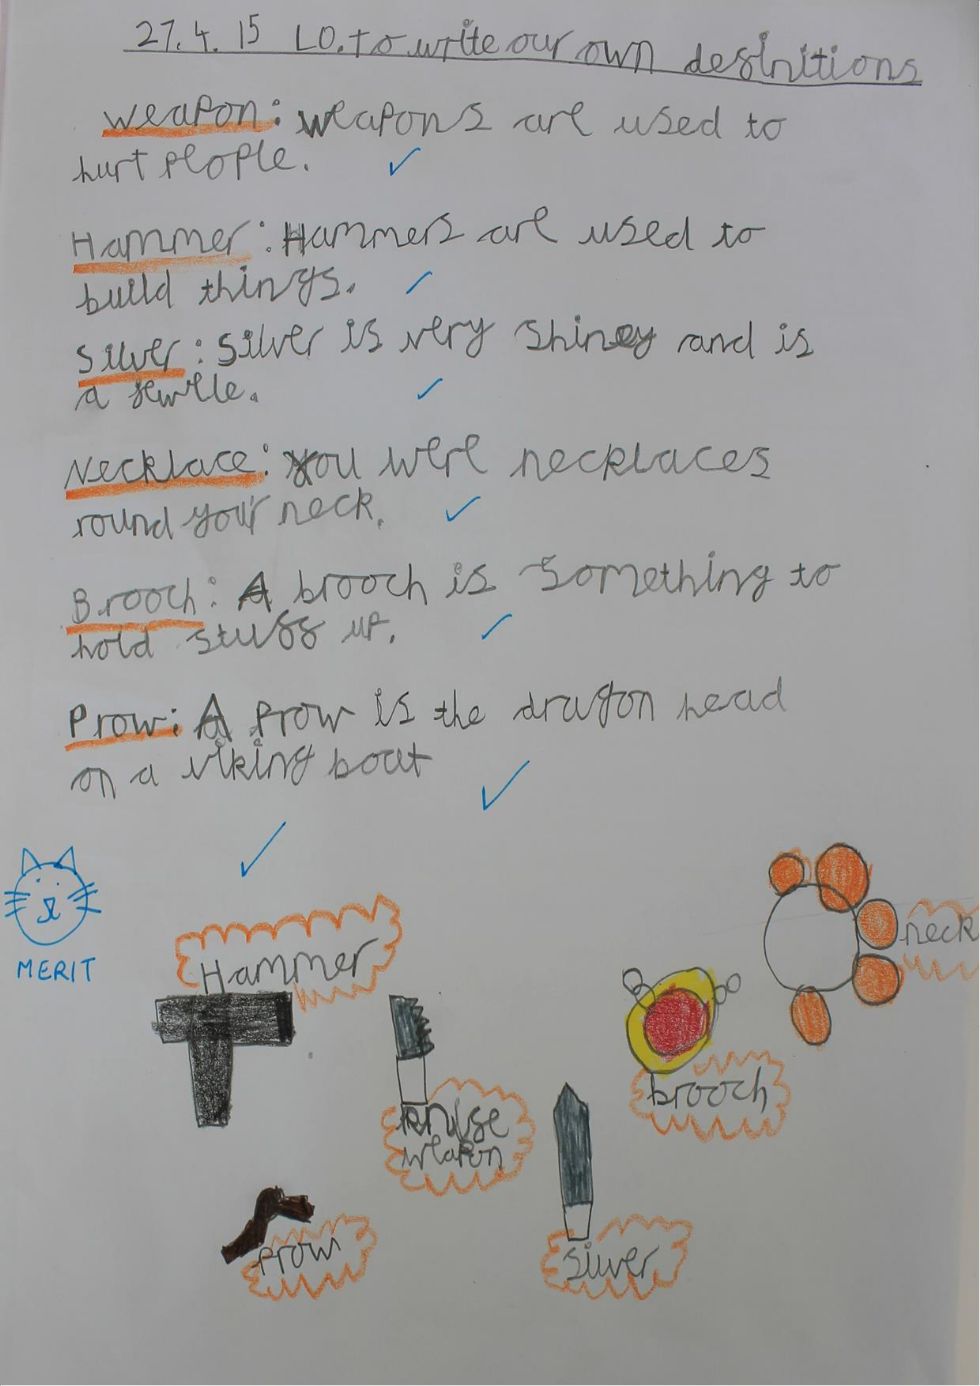 27.4.15 LO. to write our own definitions
weapon: weapons are used to
hurt people.
Hammer: Hammers are used to
build things.
Silver: Silver is very Shiney and is
a jewlle.
Necklace: You were necklaces
round your neck.
Brooch: A brooch is Something to
hold stuff up.
Prow: A Prow is the dragon head
on a viking boat
MERIT
Hammer
neck
knife
weapon
brooch
Prow
Silver